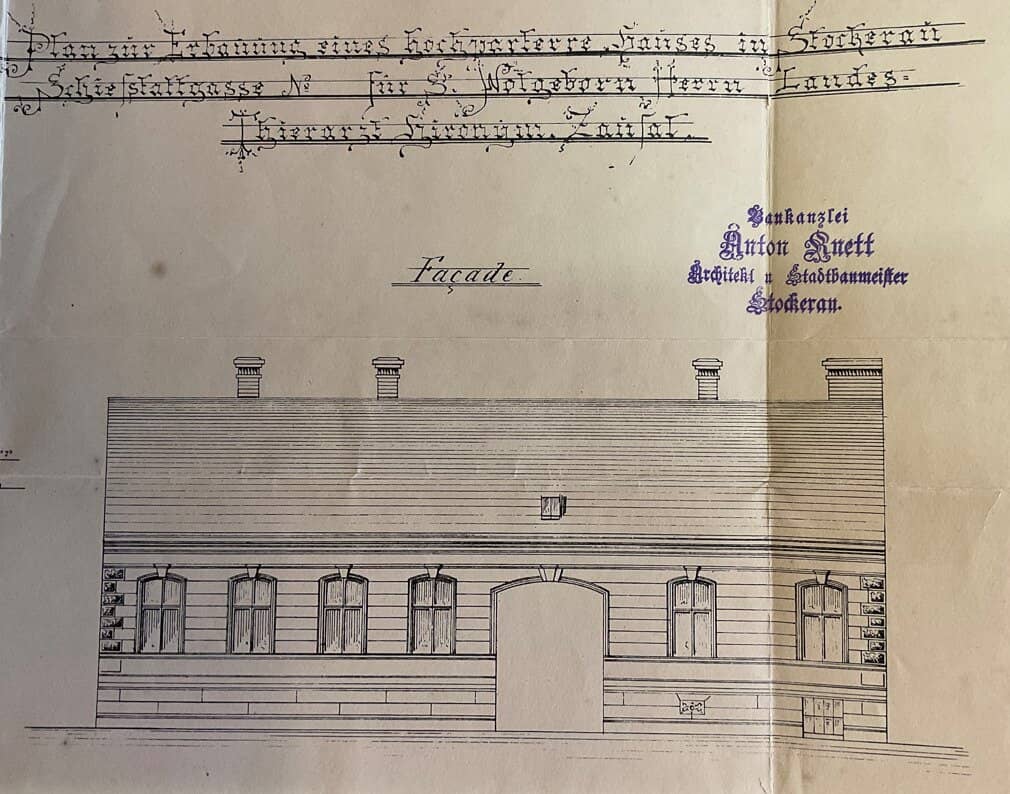 Plan zur Erbauung eines hochparterre Hauses in Stockerau
Schiesstattgasse № für S. Wolgeborn Herrn Landes=
Thierarzt Hironÿm. Zausal.
Baukanzlei
Anton Knett
Architekt u Stadtbaumeister
Stockerau.
Façade.